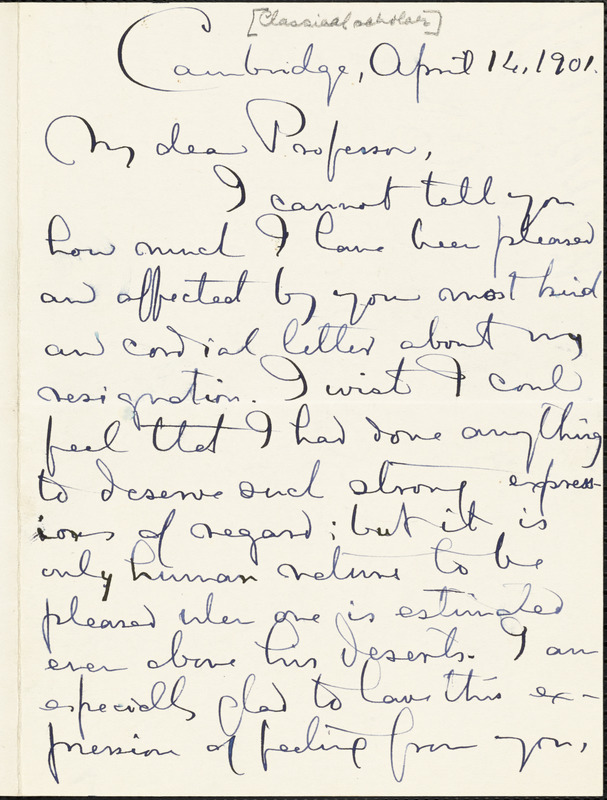 [Classical scholar]
Cambridge, April 14, 1901.
My dear Professor,
I cannot tell you
how much I have been pleased
and affected by your most kind
and cordial letter about my
resignation. I wish I could
feel that I had done anything
to deserve such strong express-
ions of regard; but it is
only human nature to be
pleased when one is estimated
even above his deserts. I am
especially glad to have this ex-
pression of feeling from you,